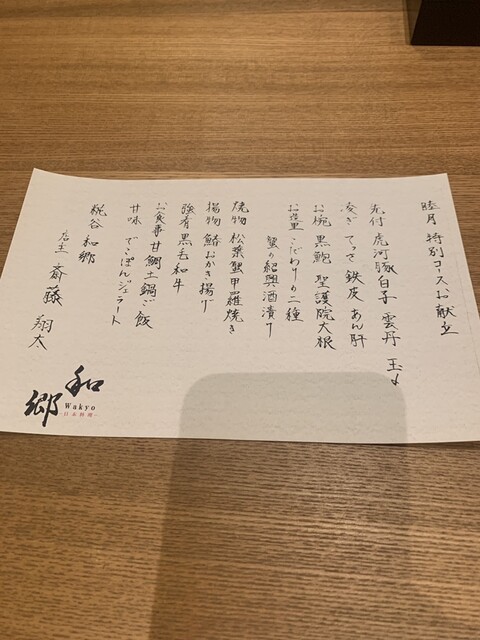 睦月 特別コースお献立
先付 虎河豚白子 雲丹 玉〆
凌ぎ てっさ 鉄皮 あん肝
お椀 黒鮑 聖護院大根
お造里 こだわりの二種
蟹の紹興酒漬け
焼物 松葉蟹甲羅焼き
揚物 鰆おかき揚げ
強肴 黒毛和牛
お食事 甘鯛土鍋ご飯
甘味 でこぽんジェラート
糀谷 和郷
店主 斎藤 翔太
和郷
Wakyo
-日本料理-